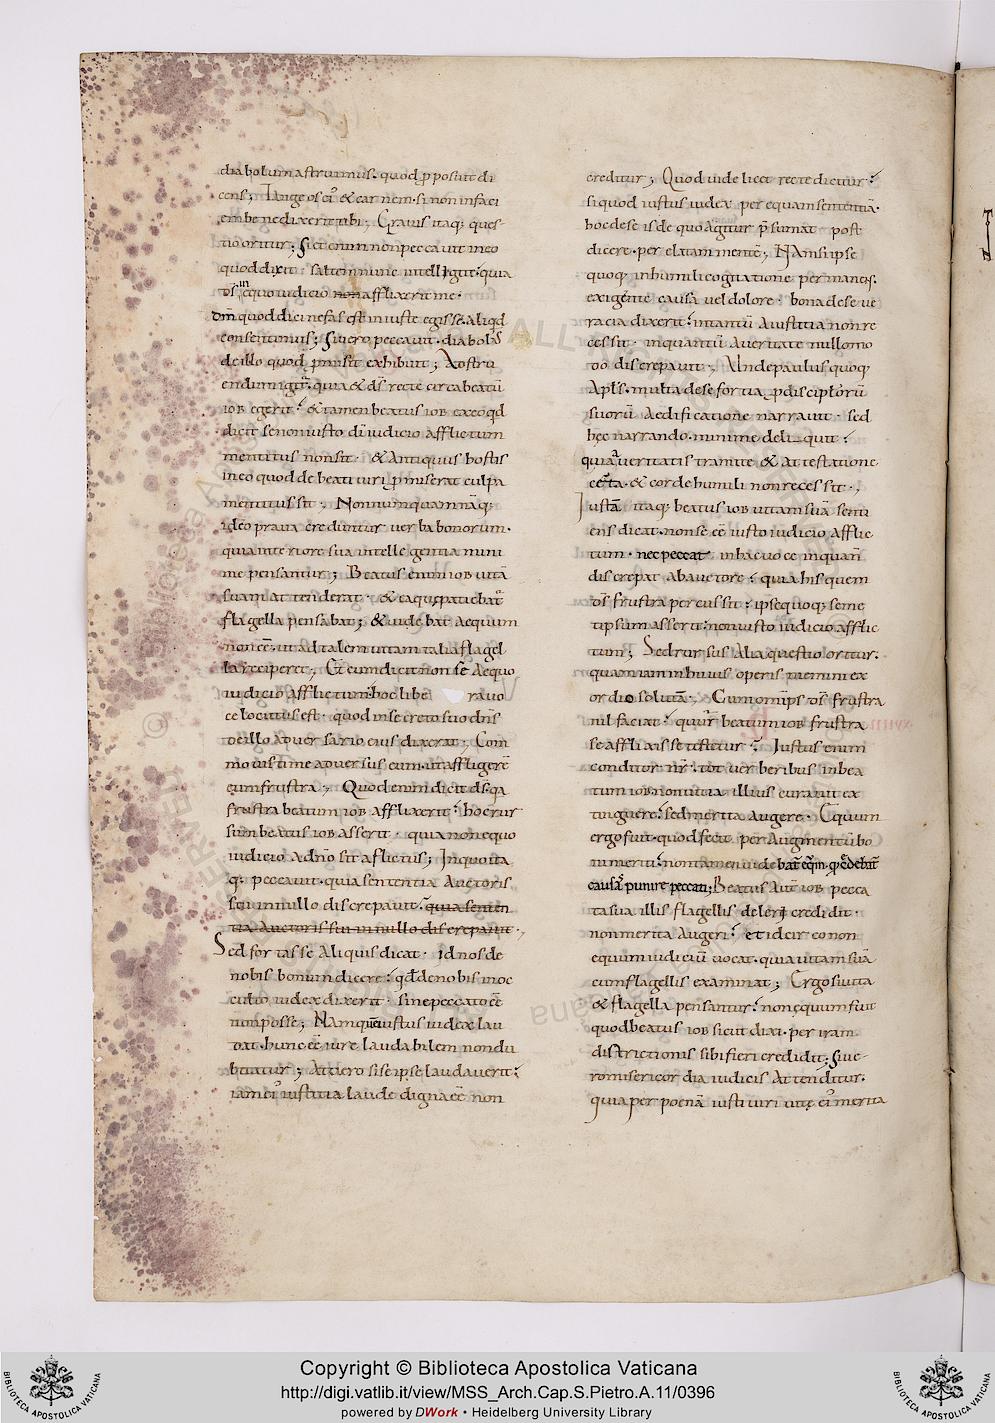 diabolum astruimus. quod p̄posuit di
cens; Tange os ei᷒ & carnem. si non in faci
em benedixerit tibi; Gravis itaq; ques
tio oritur; Si & enim non peccavit in eo
quod dixit saltem nunc intellIgite. quia
d̄s in equo iudicio non afflixerit me.
Dm̄ quod dici nefas est iniuste egisse. aliq̄d
consentimus; Si vero peccavit. diabol᷒
de illo quod p̄misit exhibuit; Astru
endum igit̄. quia & d̄s recte circa beatū
iob egerit & tamen beatus iob ex eo q̄d
dicit se non iusto dī iudicio afflictum
mentitus non sit. & Antiquus hostis
in eo quod de beati viri p̄miserat culpa
mentitus sit. Nonnumquam nāq;
ideo prava creduntur verba bonorum.
quia interiore sua intellegentia mini
me pensantur; Beatus enim iob vitā
suam attenderat. & ea quę patiebat̄
flagella pensabat; & videbat aequum
non eē. ut ad talem vitam talia flagel
la reciperet; Et cum dicit non se Aequo
iudicio afflictum. hoc libe ra vo
ce locutus est. quod in secreto suo dn̄s
de illo adversario eius dixerat; Com
movisti me adversus eum. ut affligerē
eum frustra; Quod enim dicit d̄s. q̄a
frustra beatum iob afflixerit hoc rur
sum beatus iob asserit. quia non equo
iudicio A dn̄o sit aflictus; In quo ita
q; peccavit. quia sententia Auctoris
sui in nullo discrepavit. quia senten
tia Auctoris sui in nullo discrepavit.,
Sed fortasse Aliquis dicat. id nos de
nobis bonum dicere q̄d de nobis in oc
culto iudex dixerit sine peccato eē
non posse; Namque iustus iudex lau
dat. hunc eē iure laudabilem non du
bitatur; At vero si se ipse laudaverit
iam ei᷒ iustitia laude digna eē non
creditur; Quod videlicet recte dicitur
si quod iustus iudex per equam sententiā.
hoc de se is de quo Agitur p̄sumat post
dicere. per elatam mentē; NAm si ipse
quoq; in humili cogitatione permanens.
exigente causa vel dolore. bona de se ve
racia dixerit intantū A iustitia non re
cessit inquantū A veritate nullomo
do discrepavit; Unde paulus quoq;
Apl̄s. multa de se fortia p̄ discipulorū
suorū Aedificatione narravit. sed
hęc narrando. minime deliquit
quia A veritatis tramite & attestatione
certa. & corde humili non recessit.,
Iustā itaq; beatus iob vitam suā senti
ens dicat. non se eē iusto iudicio afflic
tum. nec peccat in hac voce inquam
discrepat ab auctore quia his quem
d̄s frustra percussit. ipse quoq; seme
tipsum asserit non iusto iudicio afflic
tum; Sed rursus Alia questio oritur.
quam iam in huius operis memini ex
ordio solutā. Cum omnip̄s d̄s frustra
nil faciat cur beatum iob frustra
se afflixisse testetur Iustus enim
conditor nr̄. tot verberibus in bea
tum iob non vitia illius curavit ex
tinguere. sed merita Augere. Equum
ergo fuit. quod fecit per Augmentū bo
ni meriti. non tamen videbat̄ eq̄m. q̄ credebat̄
causā punire peccati; Beatus Aut̄ iob pecca
ta sua illis flagellis deleri credidit.
non merita Augeri et idcirco non
equum iudiciū vocat. quia vitam suā
cum flagellis examinat; Ergo si vita
& flagella pensantur. non equum fuit
quod beatus iob sicut dixi. per iram
districtionis sibi fieri credidit; Si ve
ro misericordia iudicis Attenditur.
quia per poenā iusti viri vitę ei᷒ merita
Copyright © Biblioteca Apostolica Vaticana
http://digi.vatlib.it/view/MSS_Arch.Cap.S.Pietro.A.11/0396
powered by DWork • Heidelberg University Library
BIBLIOTECA APOSTOLICA VATICANA
BIBLIOTECA APOSTOLICA VATICANA